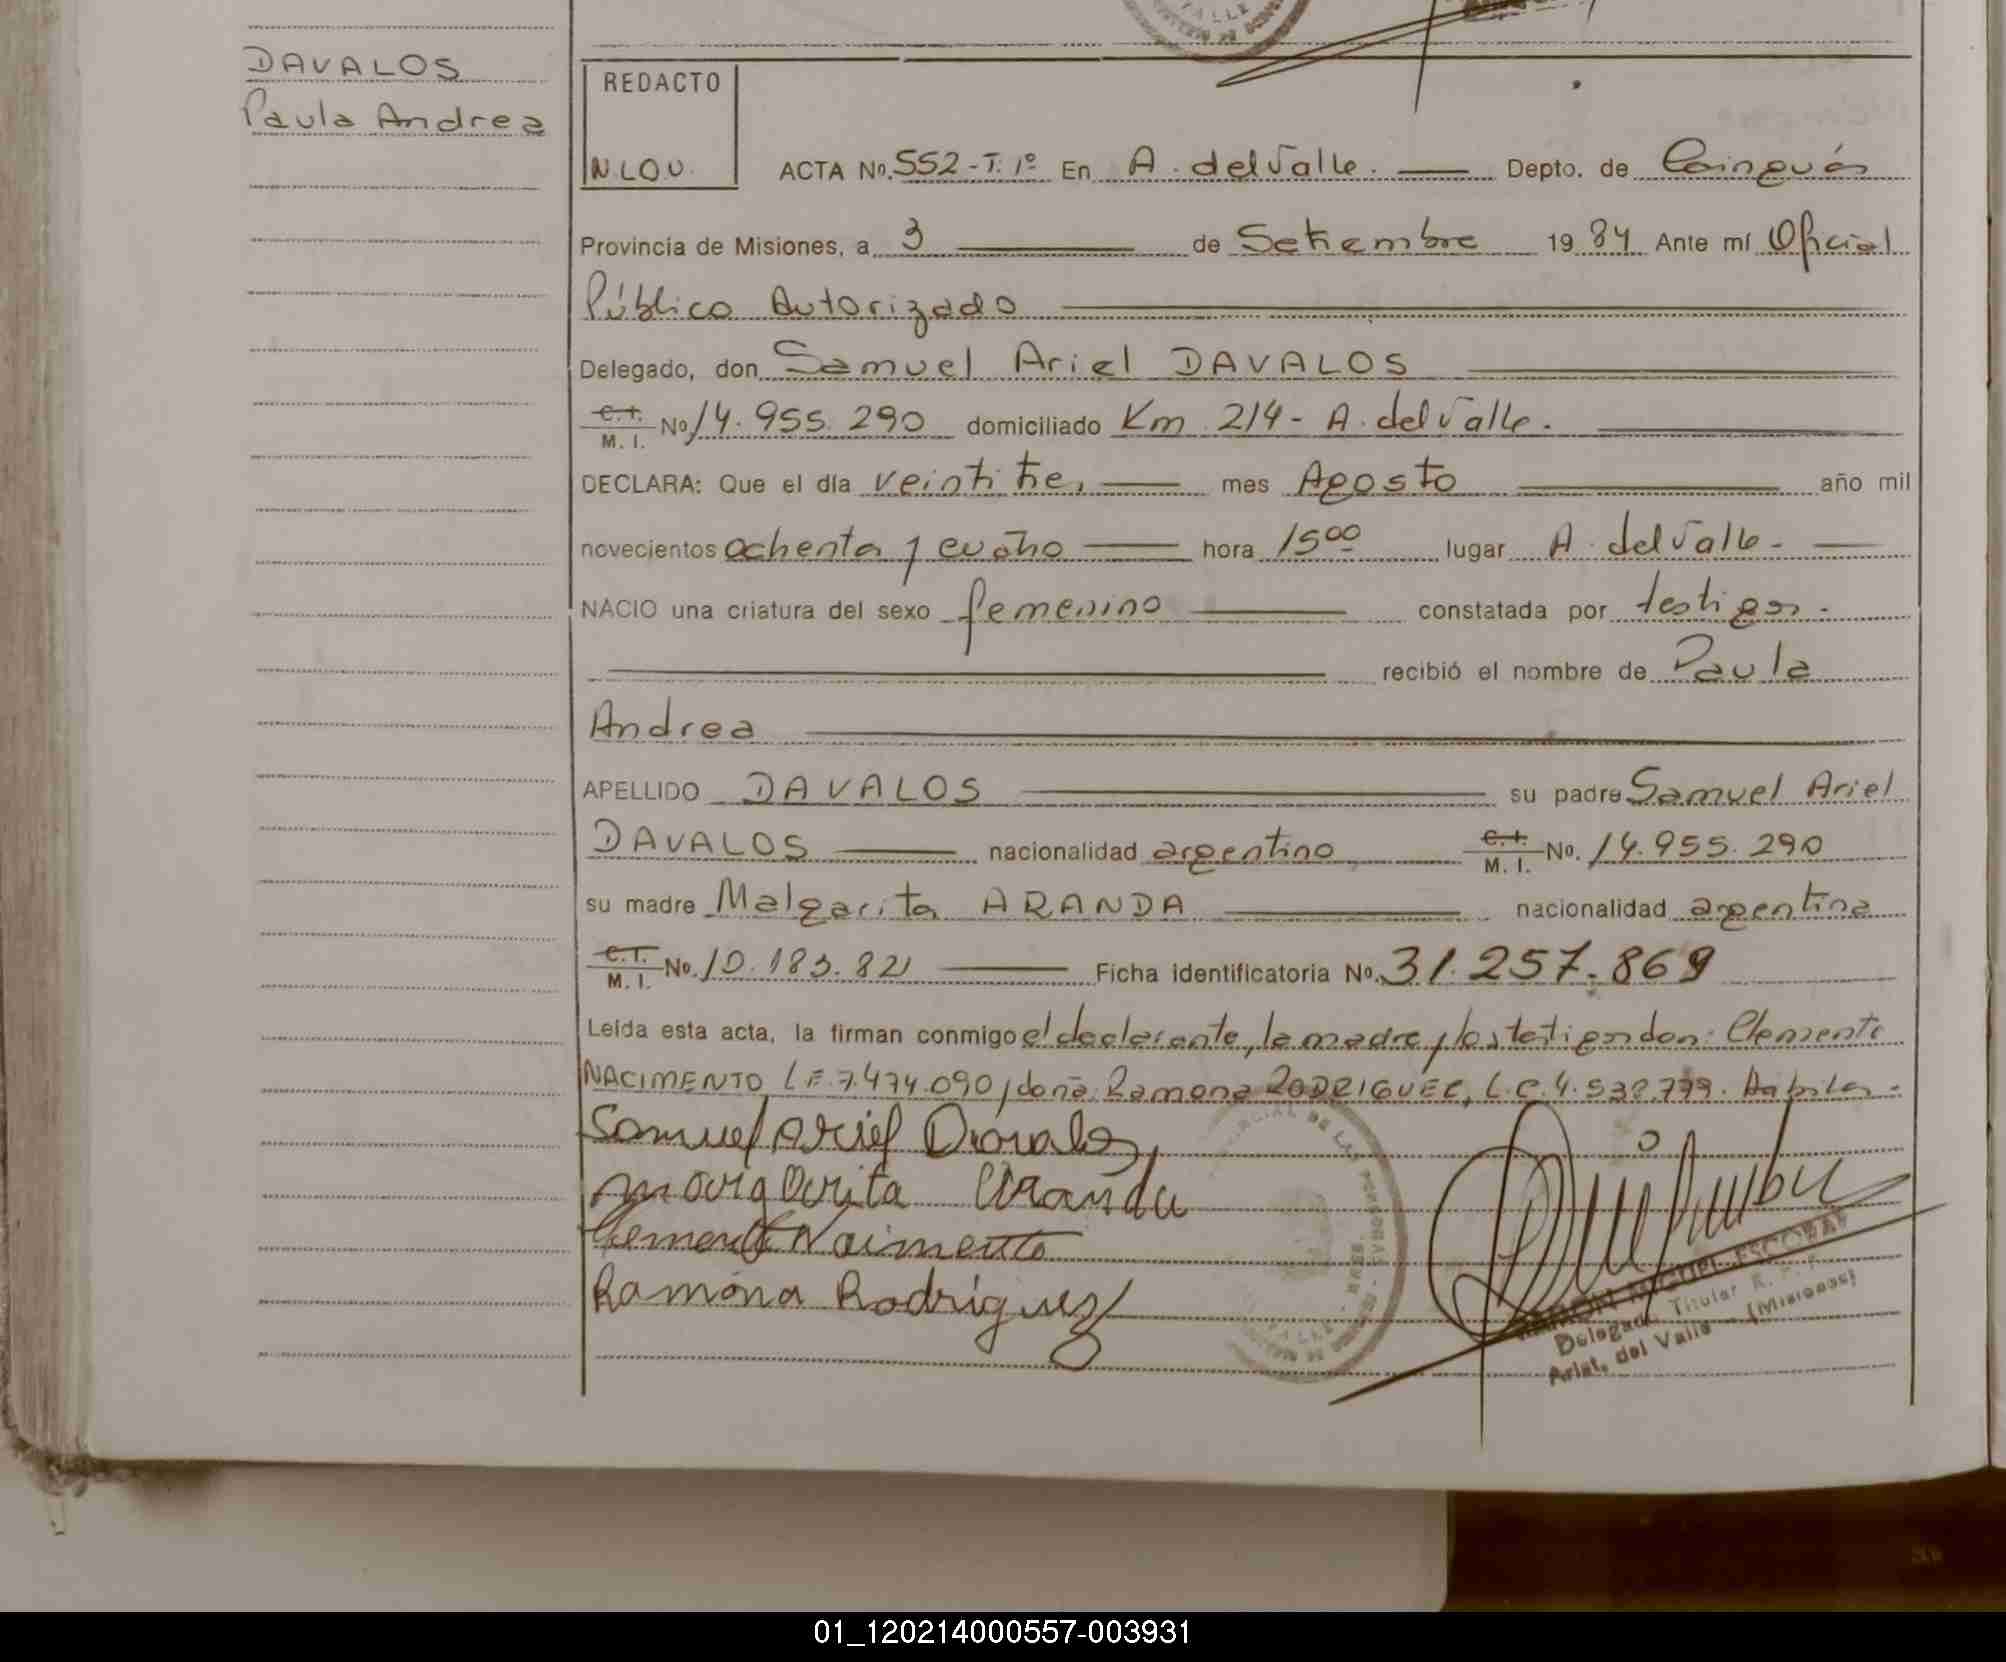 DAVALOS
Paula Andrea
REDACTO
N.LOU.
ACTA No. 552-T.1º En A. del Valle. Depto. de Cainguás
Provincia de Misiones, a 3 de Setiembre 1984 Ante mí Oficial
Público Autorizado
Delegado, don Samuel Ariel DAVALOS
C.I. M.I. No 14.955.290 domiciliado Km 214 - A. del Valle.
DECLARA: Que el día veintitres mes Agosto año mil
novecientos ochenta y cuatro hora 15 00 lugar A. del Valle -
NACIO una criatura del sexo femenino constatada por testigos.
recibió el nombre de Paula
Andrea
APELLIDO DAVALOS su padre Samuel Ariel
DAVALOS nacionalidad argentino C.I. M.I. No. 14.955.290
su madre Malgarita ARANDA nacionalidad argentina
C.I. M.I. No. 10.183.821 Ficha identificatoria No. 31.257.869
Leída esta acta, la firman conmigo el declarante, la madre y los testigos don: Clemente
NACIMENTO L.E. 7.474.090 y doña: Ramona RODRIGUEZ, L.C. 4.532.779. Hábiles.
Samuel Ariel Davalos
Margarita Aranda
Clemente Naimento
Ramona Rodriguez
RAMON MIGUEL ESCOBAR
Delegado Titular R. P. P.
Arist. del Valle - (Misiones)
01_120214000557-003931